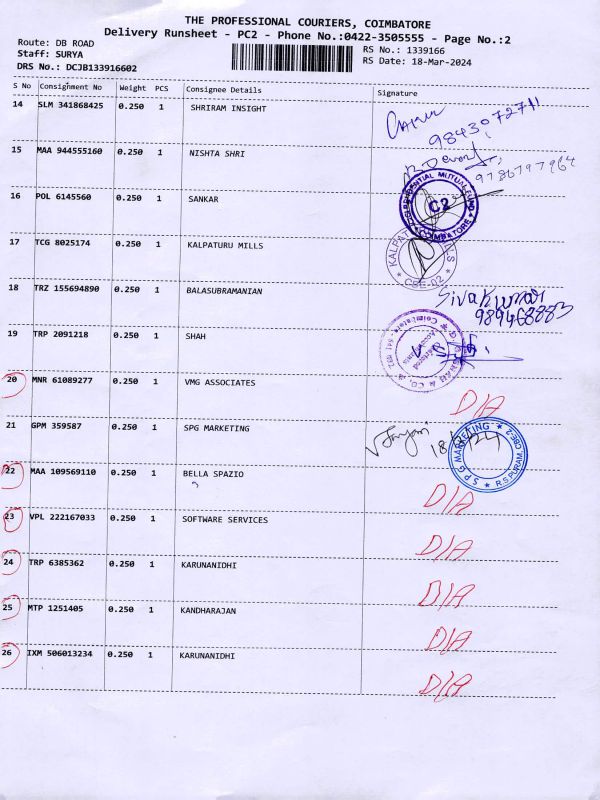 THE PROFESSIONAL COURIERS, COIMBATORE
Delivery Runsheet - PC2 - Phone No.:0422-3505555 - Page No.:2
Route: DB ROAD
RS No.: 1339166
Staff: SURYA
RS Date: 18-Mar-2024
DRS No.: DCJB133916602
S No Consignment No Weight PCS Consignee Details Signature
14 SLM 341868425 0.250 1 SHRIRAM INSIGHT
9843072711
15 MAA 944555160 0.250 1 NISHTA SHRI
9786797964
16 POL 6145560 0.250 1 SANKAR
PRUDENTIAL MUTUAL FUND
C2
COIMBATORE
17 TCG 8025174 0.250 1 KALPATURU MILLS
CBE-02
18 TRZ 155694890 0.250 1 BALASUBRAMANIAN
Sivakumar
989468883
19 TRP 2091218 0.250 1 SHAH
20 MNR 61089277 0.250 1 VMG ASSOCIATES D/A
21 GPM 359587 0.250 1 SPG MARKETING
SPG MARKETING R.S PURAM, CBE-2
22 MAA 109569110 0.250 1 BELLA SPAZIO D/A
23 VPL 222167033 0.250 1 SOFTWARE SERVICES D/A
24 TRP 6385362 0.250 1 KARUNANIDHI D/A
25 MTP 1251405 0.250 1 KANDHARAJAN D/A
26 IXM 506013234 0.250 1 KARUNANIDHI D/A